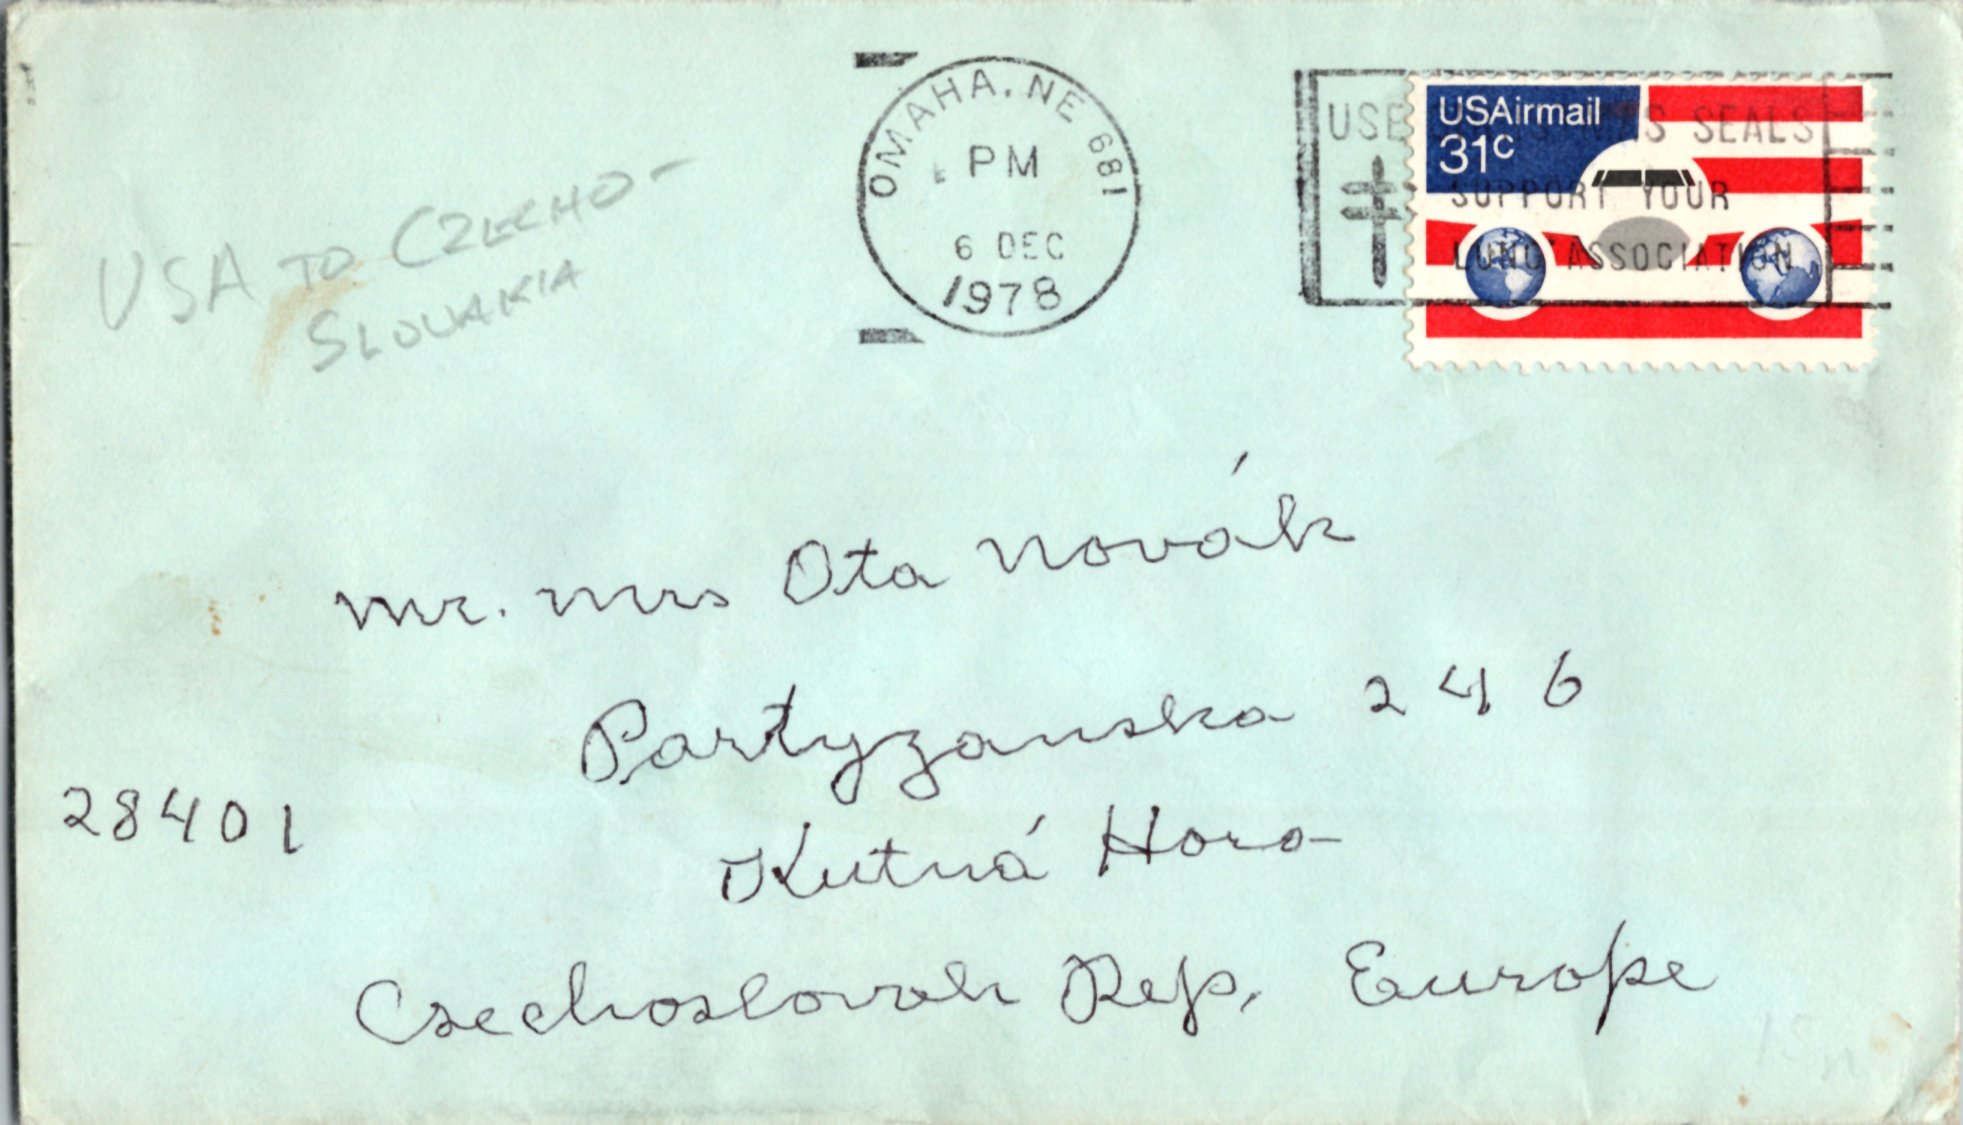 OMAHA, NE 681
PM
6 DEC
1978
USE SEALS
SUPPORT YOUR
LUNG ASSOCIATION
USAirmail
31c
USA TO CZECHO-
SLOVAKIA
Mr. Mrs Ota Novák
Partyzanska 246
28401
Kutná Hora
Czechoslovak Rep. Europe